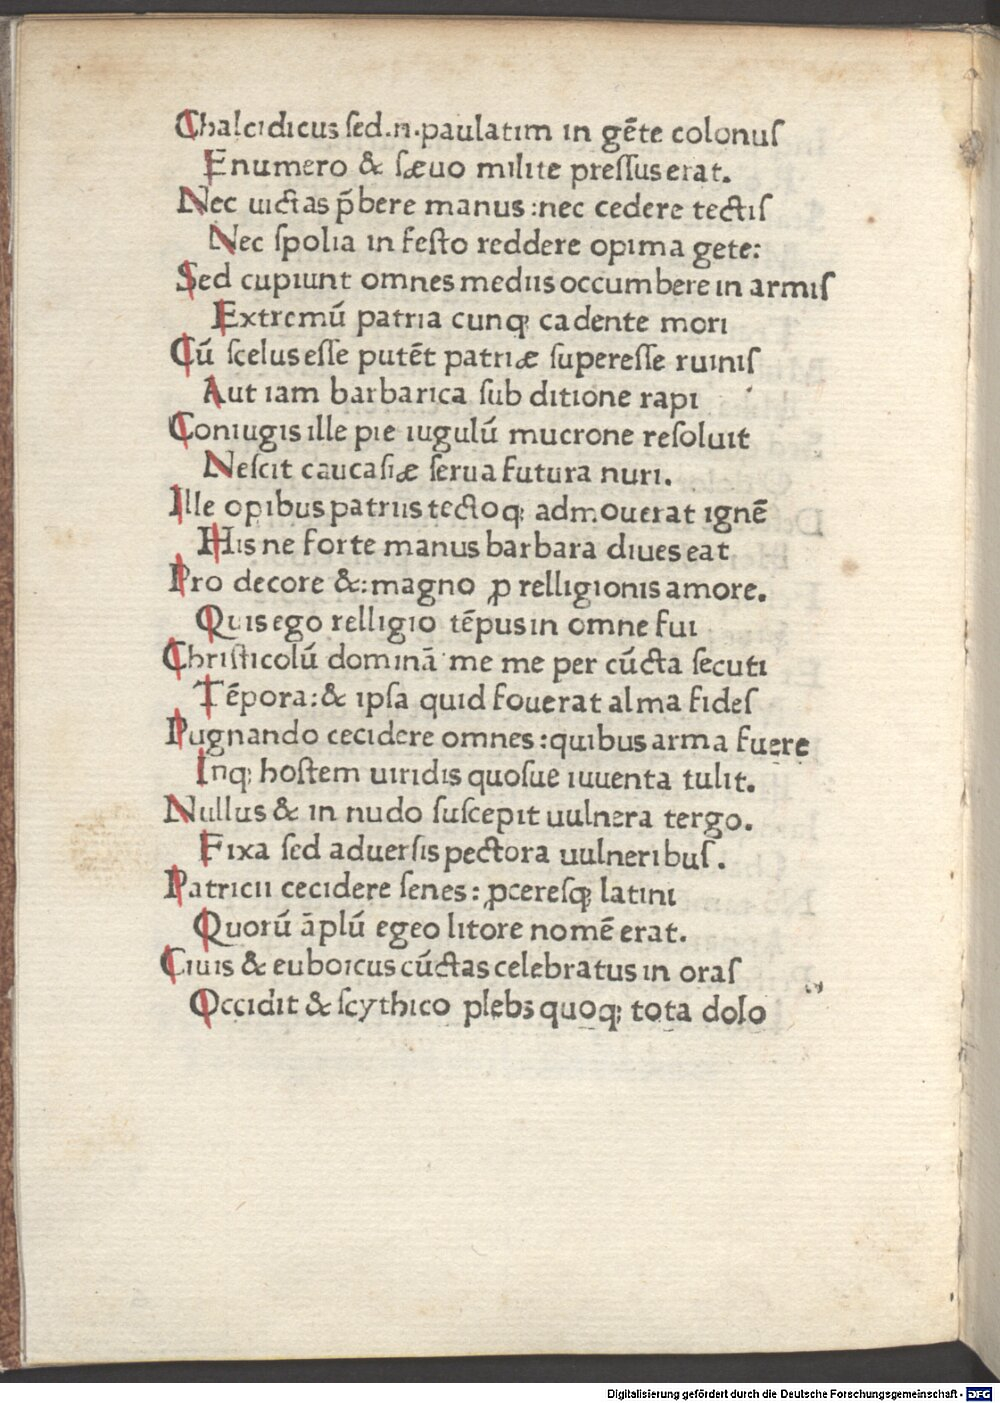 Chalcidicus ſed.n.paulatim in gēte colonuſ
Enumero & ſæuo milite preſſus erat.
Nec uictas p̄bere manus :nec cedere tectiſ
Nec ſpolia in feſto reddere opima gete:
Sed cupiunt omnes mediis occumbere in armiſ
Extremū patria cunqꝫ cadente mori
Cū ſcelus eſſe putēt patriæ ſupereſſe ruiniſ
Aut iam barbarica ſub ditione rapi
Coniugis ille pie iugulū mucrone reſoluit
Neſcit caucaſiæ ſerua futura nuri.
Ille opibus patriis tectoqꝫ admouerat ignē
His ne forte manus barbara diues eat
Pro decore &: magno ꝓ relligionis amore.
Quis ego relligio tēpus in omne fui
Chriſticolū dominā me me per cūcta ſecuti
Tēpora:& ipſa quid fouerat alma fideſ
Pugnando cecidere omnes :quibus arma fuere
Inqꝫ hoſtem uiridis quoſue iuuenta tulit.
Nullus & in nudo ſuſcepit uulnera tergo.
Fixa ſed aduerſis pectora uulneribuſ.
Patricii cecidere ſenes: ꝓcereſqꝫ latini
Quorū āplū egeo litore nomē erat.
Ciuis & euboicus cūctas celebratus in oraſ
Occidit & ſcythico plebs quoqꝫ tota dolo
Digitalisierung gefördert durch die Deutsche Forschungsgemeinschaft - DFG